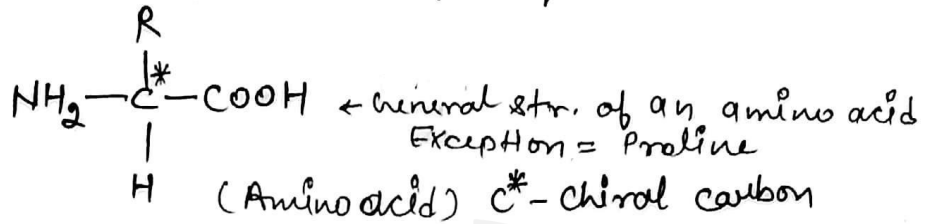 R
NH₂-C*-COOH ← General str. of an amino acid
Exception = Proline
H
(Amino acid) C*- Chiral carbon